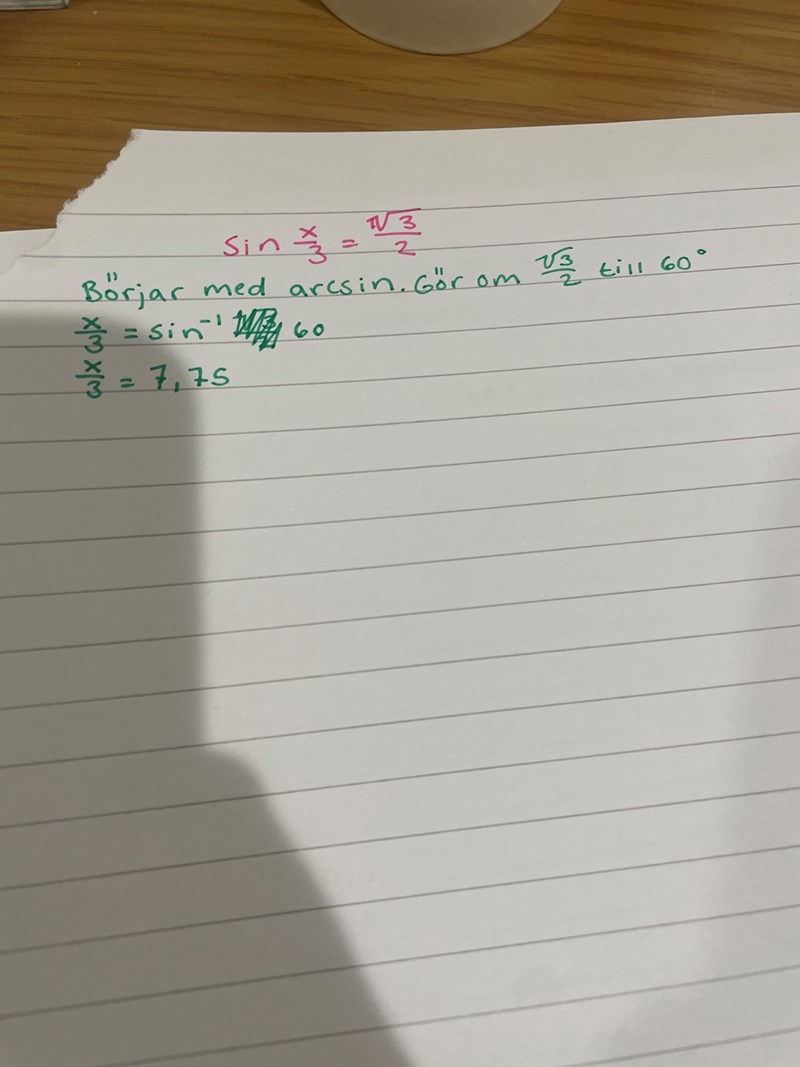 sin x/3 = √3/2
Börjar med arcsin. Gör om √3/2 till 60°
x/3 = sin⁻¹ 60
x/3 = 7,75